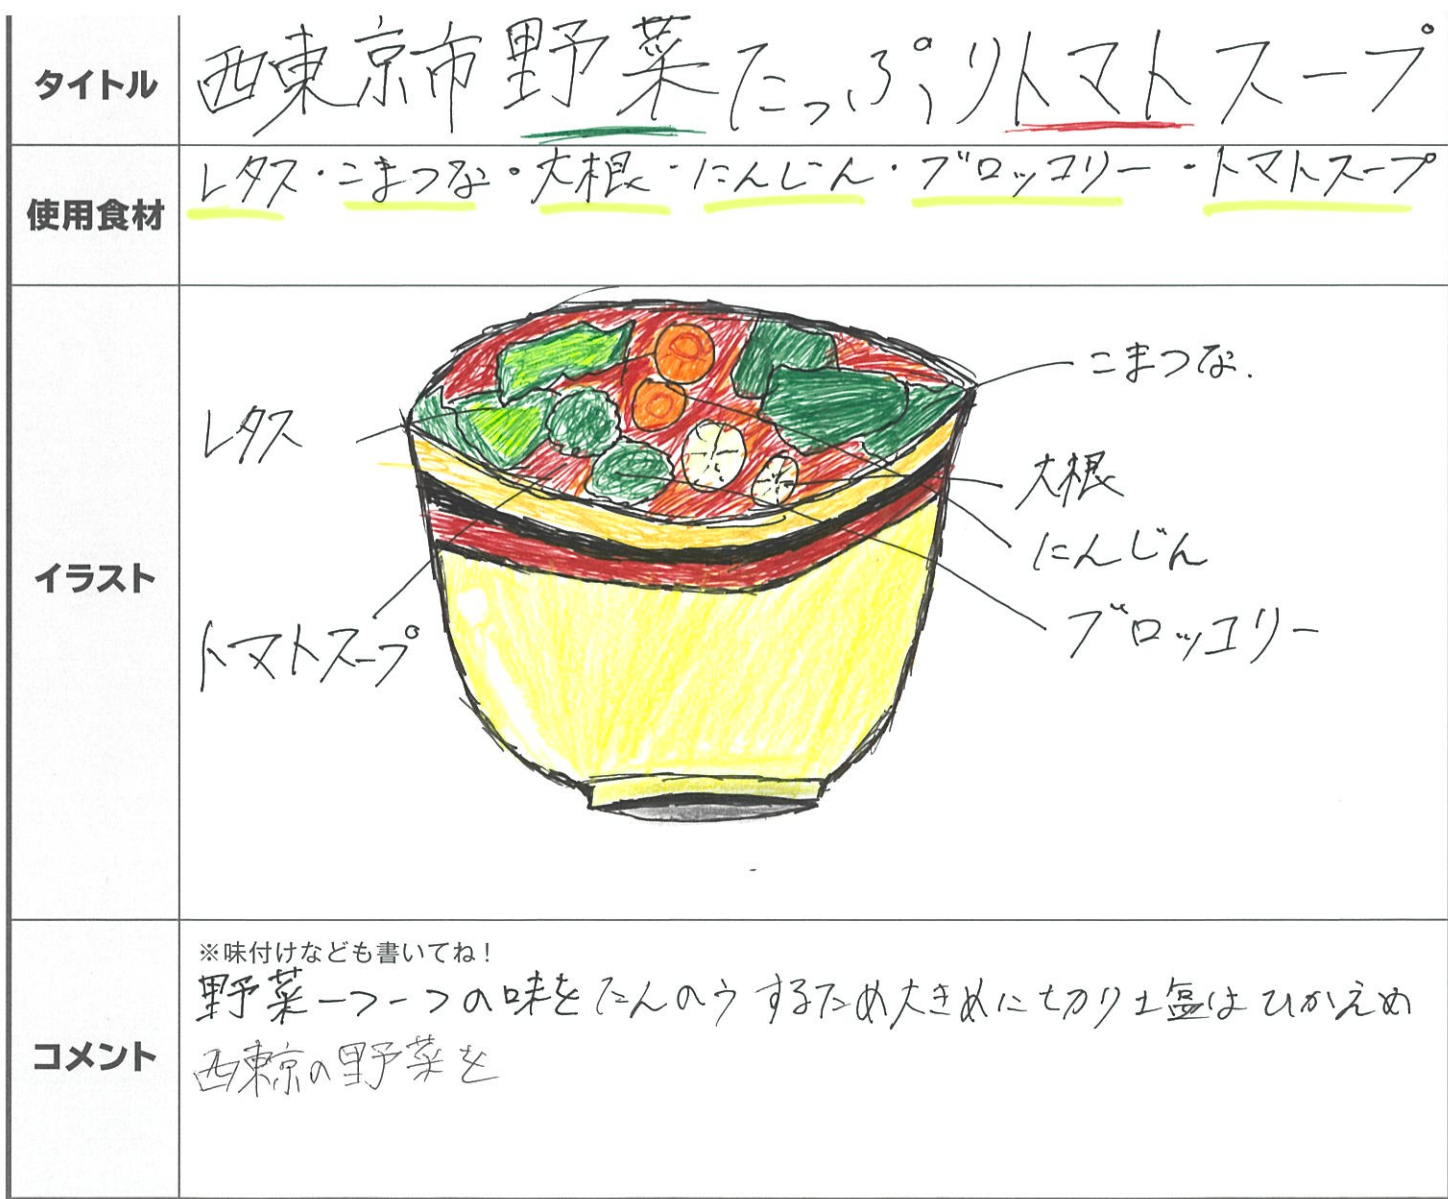 タイトル
西東京市野菜たっぷりトマトスープ
使用食材
レタス・こまつな・大根・にんじん・ブロッコリー・トマトスープ
イラスト
こまつな.
レタス
大根
にんじん
ブロッコリー
トマトスープ
コメント
※味付けなども書いてね！
野菜一つ一つの味をたんのうするため大きめに切り塩はひかえめ
西東京の野菜を